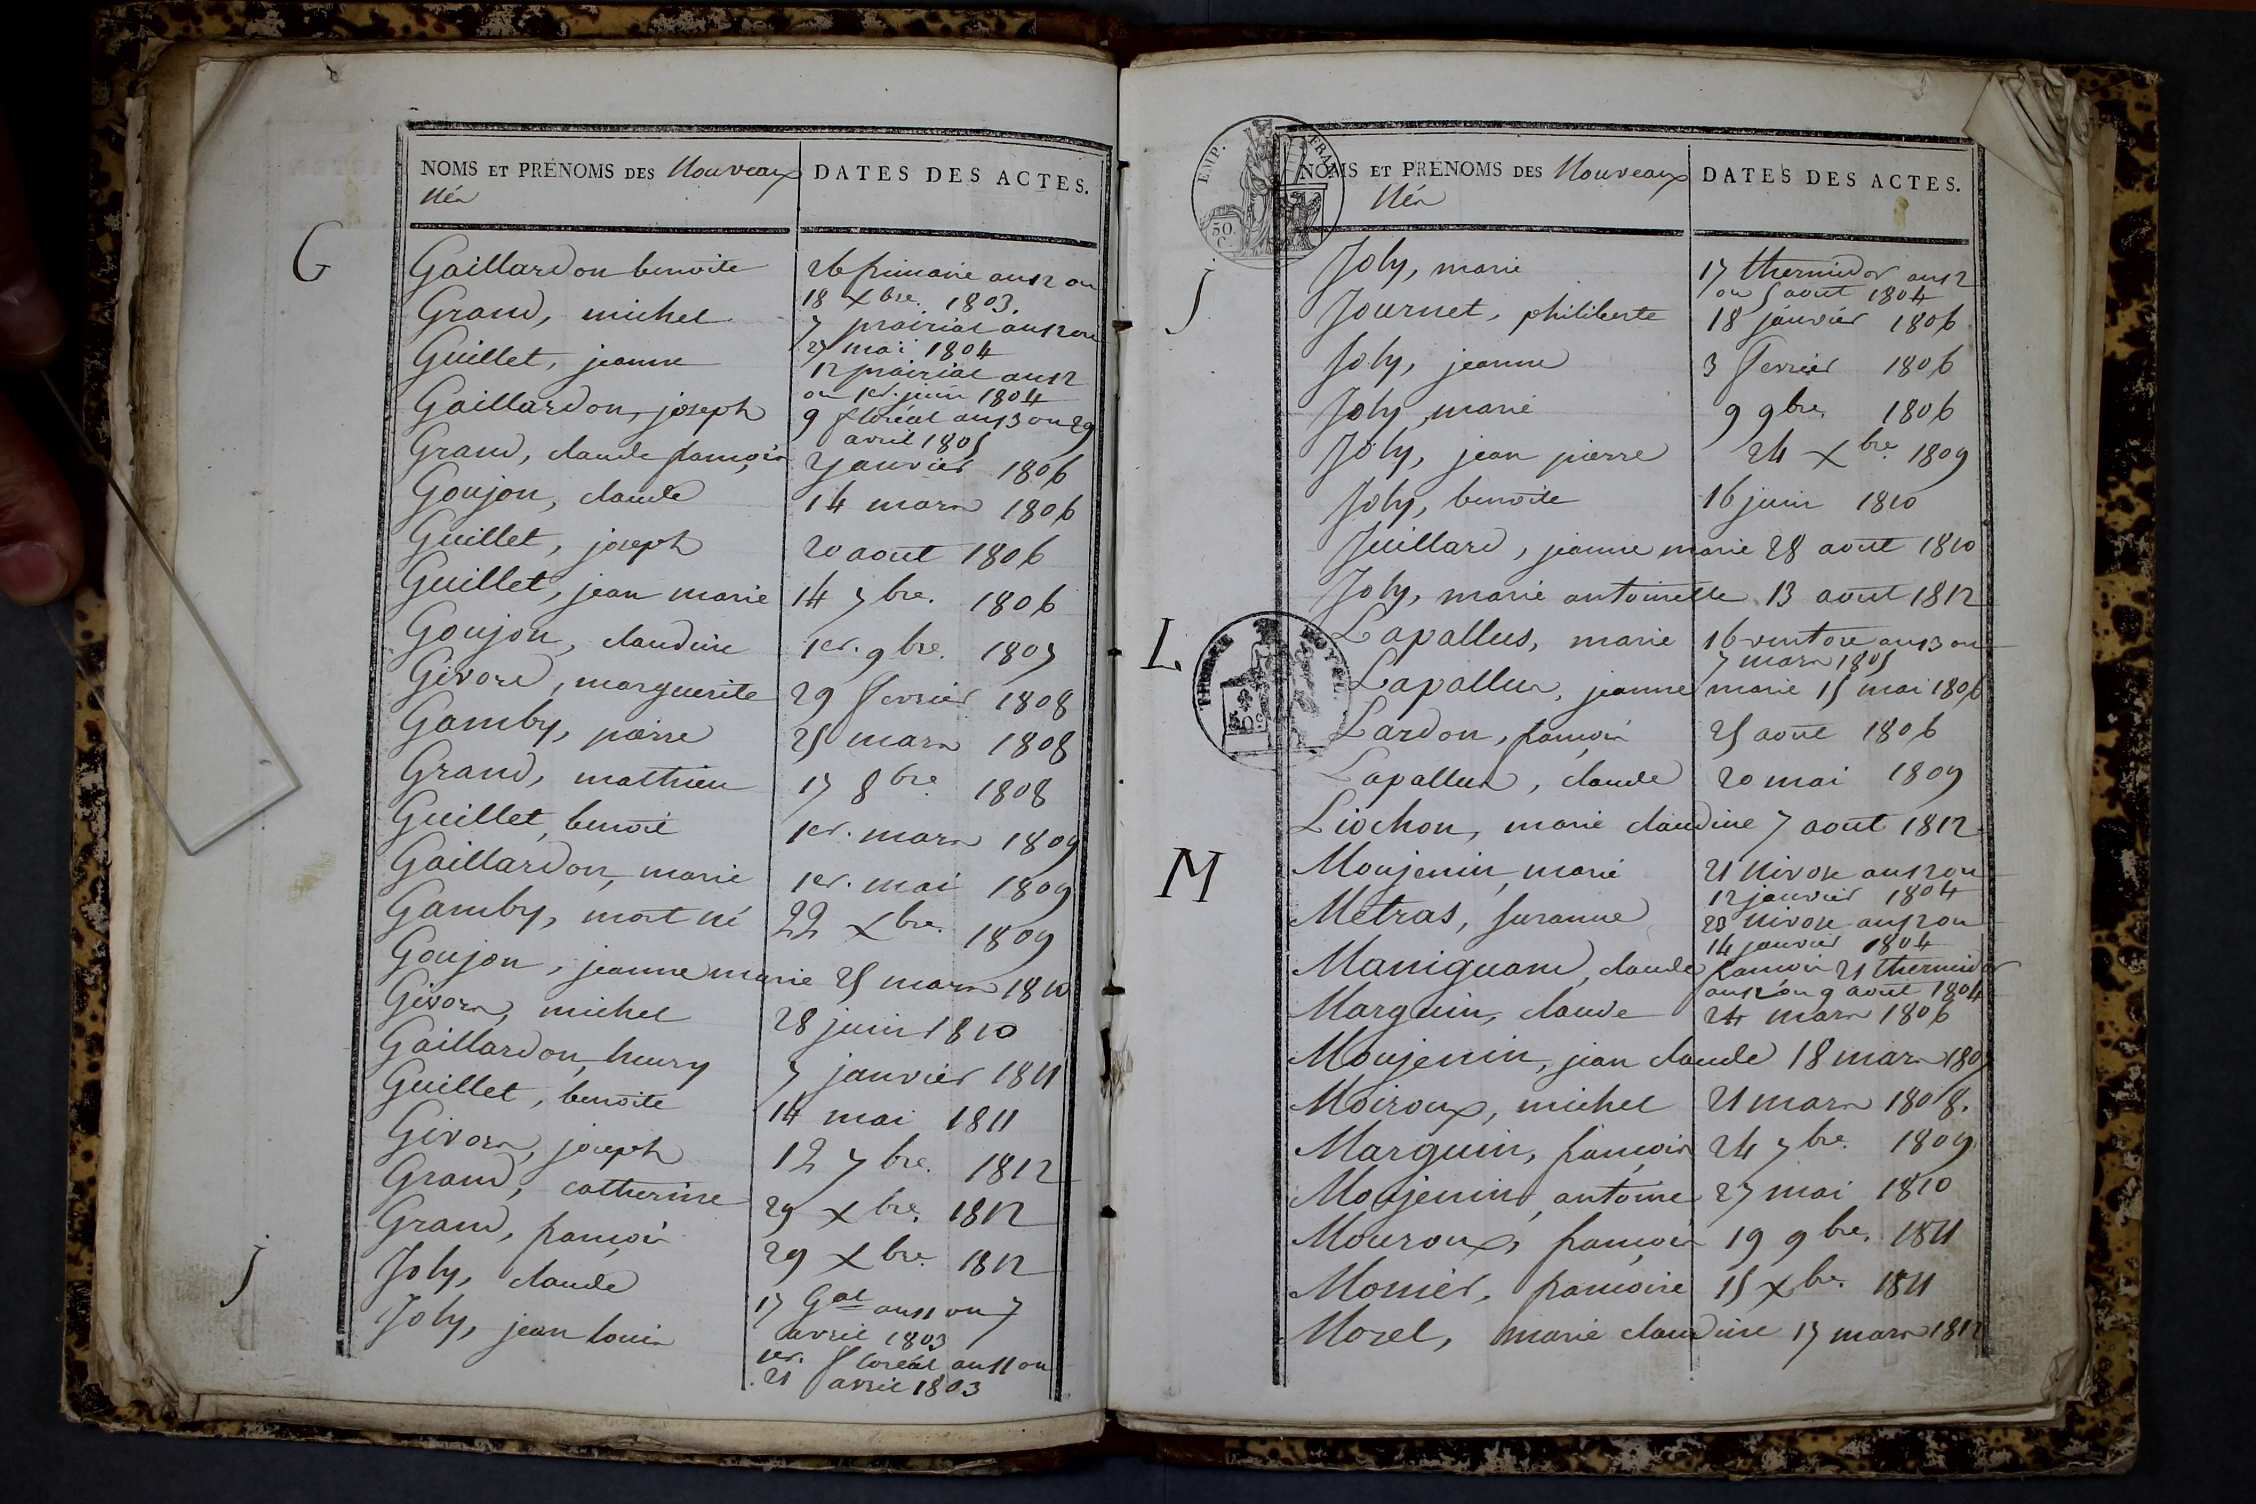 NOMS ET PRÉNOMS DES Nouveaux
Nés
DATES DES ACTES.
G
Gaillardon benoite 26 frimaire an 12 ou
18 Xbre. 1803.
Grand, michel 7 prairial an 12 ou
27 mai 1804
Guillet, jeanne 12 prairial an 12
ou 1er. juin 1804
Gaillardon, joseph 9 floréal an 13 ou 29
avril 1805
Grand, claude françois 2 janvier 1806
Goujon, claude 14 mars 1806
Guillet, joseph 20 aout 1806
Guillet, jean marie 14 7bre. 1806
Goujon, claudine 1er. 9bre. 1807
Givord, marguerite 29 fevrier 1808
Gamby, pierre 25 mars 1808
Grand, mathieu 17 8bre. 1808
Guillet, benoit 1er. mars 1809
Gaillardon, marie 1er. mai 1809
Gamby, mort né 22 Xbre. 1809
Goujon, jeanne marie 25 mars 1810
Givors, michel 28 juin 1810
Gaillardon, henry 7 janvier 1811
Guillet, benoite 14 mai 1811
Givors, joseph 12 7bre. 1812
Grand, catherine 29 Xbre. 1812
Grand, françois 29 Xbre. 1812
J
Joly, claude 17 Gal an 11 ou 7
avril 1803
Joly, jean louis 1er. floréal an 11 ou
21 avril 1803
EMP. FRAN
50. C.
NOMS ET PRÉNOMS DES Nouveaux
Nés
DATES DES ACTES.
J
Joly, marie 17 thermidor an 12
ou 5 aout 1804
Journet, philiberte 18 janvier 1806
Joly, jeanne 3 fevrier 1806
Joly, marie 9 9bre. 1806
Joly, jean pierre 24 Xbre. 1809
Joly, benoite 16 juin 1810
Juillard, jeanne marie 28 aout 1810
Joly, marie antoinette 13 aout 1812
L
TIMBRE ROYAL
50c
Lapallus, marie 16 ventose an 13 ou
7 mars 1805
Lapallus, jeanne marie 15 mai 1806
Lardon, françois 25 aout 1806
Lapallus, claude 20 mai 1809
Liochon, marie claudine 7 aout 1812
M
Moujenin, marie 21 Nivose an 12 ou
12 janvier 1804
Métras, suzanne 23 Nivose an 12 ou
14 janvier 1804
Maniguand, claude françois 21 thermidor
an 12 ou 9 aout 1804
Marguin, claude 24 mars 1806
Moujenin, jean claude 18 mars 1807
Moiroux, michel 21 mars 1808.
Marguin, françois 24 7bre. 1809
Moujenin, antoine 27 mai 1810
Mouroux, françois 19 9bre. 1811
Monier, francoise 15 Xbre. 1811
Morel, marie claudine 17 mars 1812